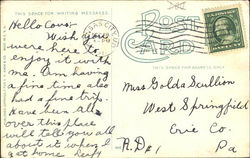 THIS SPACE FOR WRITING MESSAGES
POST
CARD
THIS SPACE FOR ADDRESS ONLY
Hello Cover
Wish you
were here to
enjoy it with
me. Am having
a fine time also
had a fine trip.
Have been all
over this place
will tell you all
about it when I
at home
Miss Golda Scullion
West Springfield
Erie Co.
R.D.#1 Pa